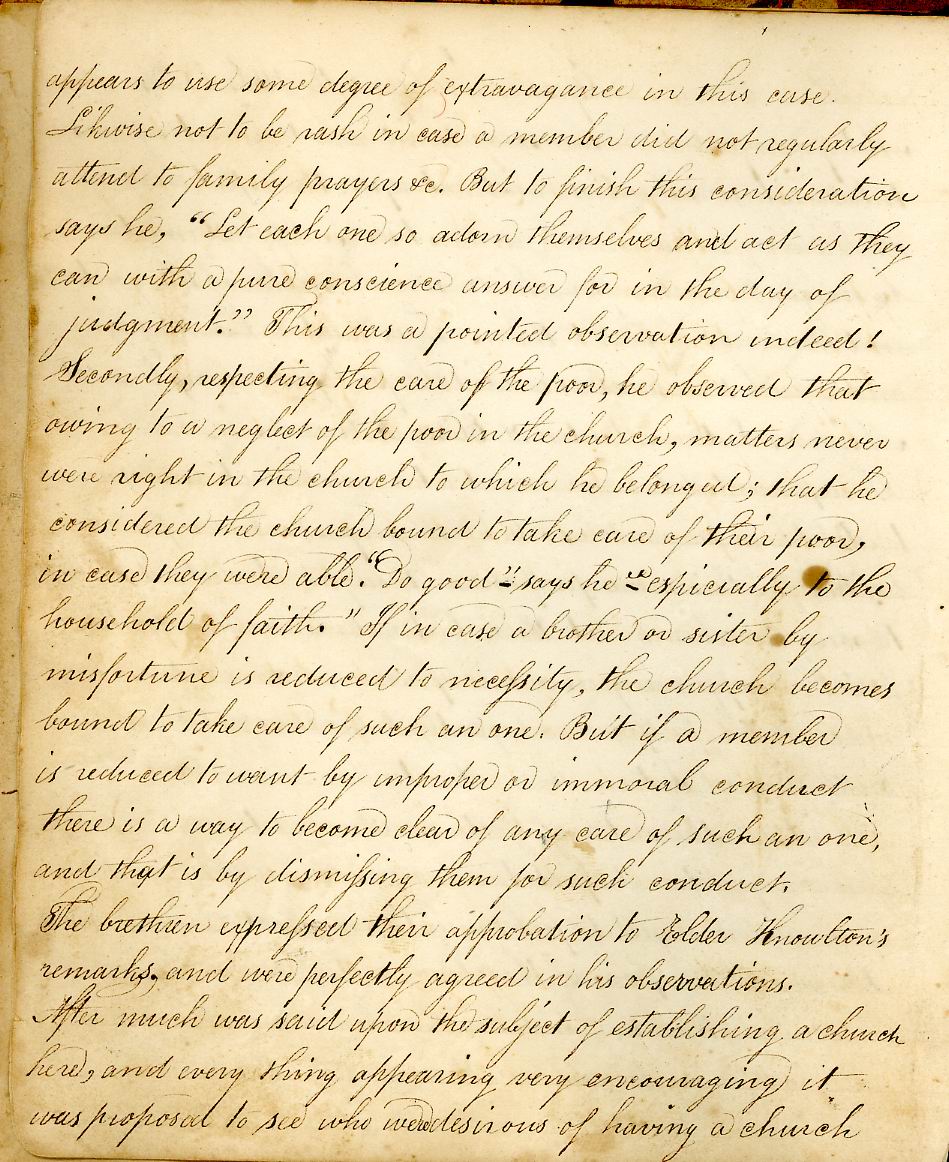 appears to use some degree of extravagance in this case.
Likwise not to be rash in case a member did not regularly
attend to family prayers &c. But to finish this consideration
says he, “Let each one so adorn themselves and act as they
can with a pure conscience answer for in the day of
judgment.” This was a pointed observation indeed!
Secondly, respecting the care of the poor, he observed that
owing to a neglect of the poor in the church, matters never
were right in the church to which he belonged; that he
considered the church bound to take care of their poor,
in case they were able. “Do good” says he “especially to the
household of faith.” If in case a brother or sister by
misfortune is reduced to neceſsity, the church becomes
bound to take care of such an one. But if a member
is reduced to want by improper or immoral conduct
there is a way to become clear of any care of such an one,
and that is by dismiſsing them for such conduct.
The brethren expreſsed their approbation to Elder Knowlton's
remarks, and were perfectly agreed in his observations.
After much was said upon the subject of establishing a church
here, and every thing appearing very encouraging it
was proposal to see who were desirous of having a church